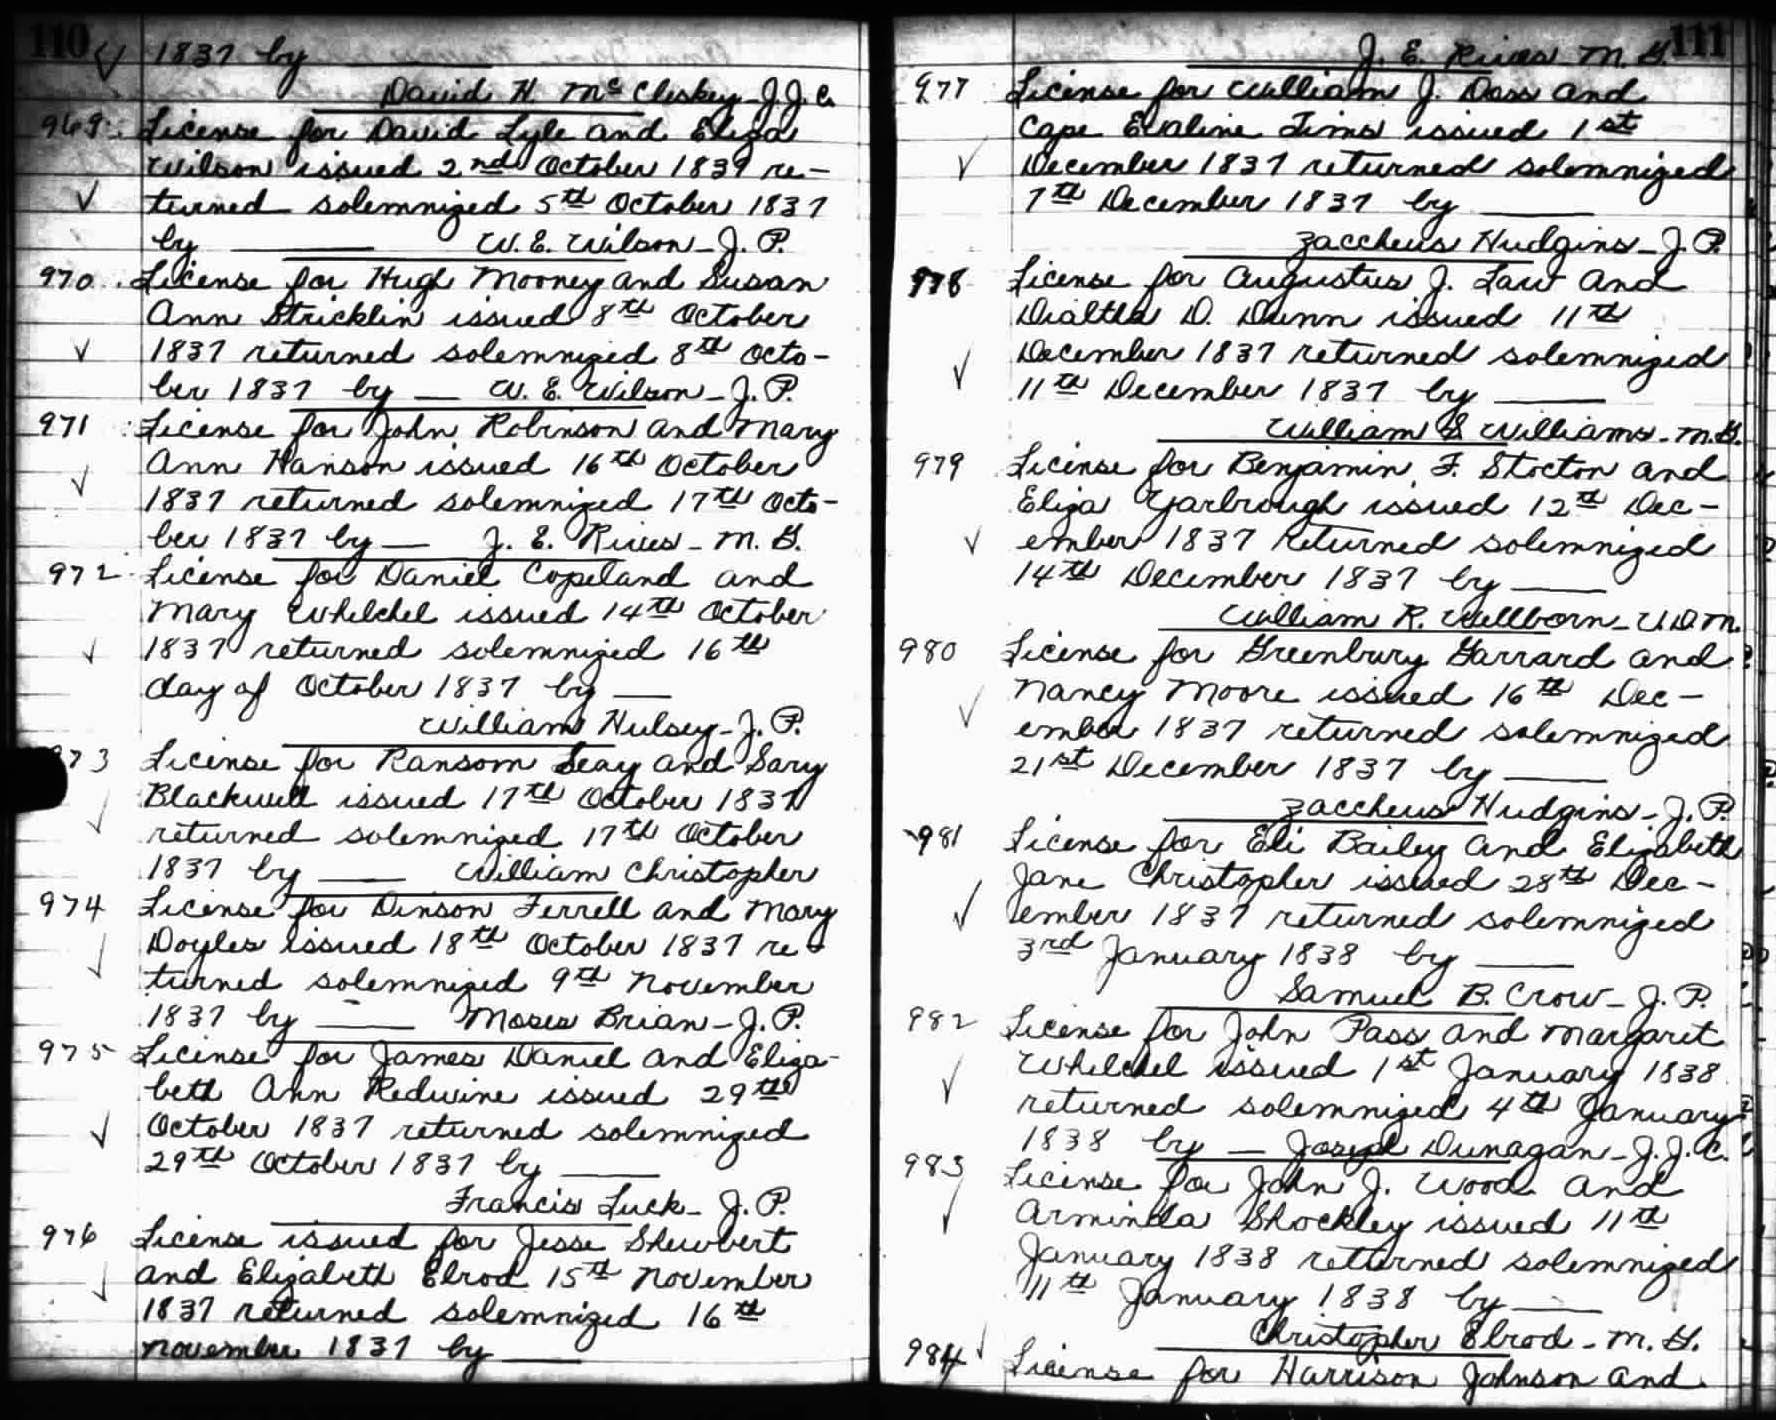 110
1837 by
David H. McCleskey - J.J.C.
969. License for David Lyle and Eliza
Wilson issued 2nd October 1839 re-
turned solemnized 5th October 1837
by W. E. Wilson - J. P.
970. License for Hugh Mooney and Susan
Ann Stricklin issued 8th October
1837 returned solemnized 8th Octo-
ber 1837 by W. E. Wilson - J. P.
971 License for John Robinson and Mary
Ann Hanson issued 16th October
1837 returned solemnized 17th Octo-
ber 1837 by J. E. Rives - M. G.
972 License for Daniel Copeland and
Mary Whelchel issued 14th October
1837 returned solemnized 16th
day of October 1837 by
William Hulsey - J. P.
973 License for Ransom Seay and Sary
Blackwell issued 17th October 1837
returned solemnized 17th October
1837 by William Christopher
974 License for Dinson Ferrell and Mary
Doyles issued 18th October 1837 re-
turned solemnized 9th November
1837 by Moses Brian - J. P.
975 License for James Daniel and Eliza-
beth Ann Redwine issued 29th
October 1837 returned solemnized
29th October 1837 by
Francis Luck - J. P.
976 License issued for Jesse Shewbert
and Elizabeth Elrod 15th November
1837 returned solemnized 16th
November 1837 by
111
J. E. Rives - M. G.
977 License for William J. Doss and
Cape Evaline Tims issued 1st
December 1837 returned solemnized
7th December 1837 by
Zaccheus Hudgins - J. P.
978 License for Augustus J. Law and
Dialtha D. Dunn issued 11th
December 1837 returned solemnized
11th December 1837 by
William S Williams - M. G.
979 License for Benjamin F. Stocton and
Eliza Yarbrough issued 12th Dec-
ember 1837 returned solemnized
14th December 1837 by
William R. Wellborn - V.D.M.
980 License for Greenbury Garrard and
Nancy Moore issued 16th Dec-
ember 1837 returned solemnized
21st December 1837 by
Zaccheus Hudgins - J. P.
981 License for Eli Bailey and Elizabeth
Jane Christopher issued 28th Dec-
ember 1837 returned solemnized
3rd January 1838 by
Samuel B. Crow - J. P.
982 License for John Pass and Margaret
Whelchel issued 1st January 1838
returned solemnized 4th January
1838 by Joseph Dunagan - J. J. C.
983 License for John J. Wood and
Arminda Shockley issued 11th
January 1838 returned solemnized
11th January 1838 by
Christopher Elrod - M. G.
984 License for Harrison Johnson and